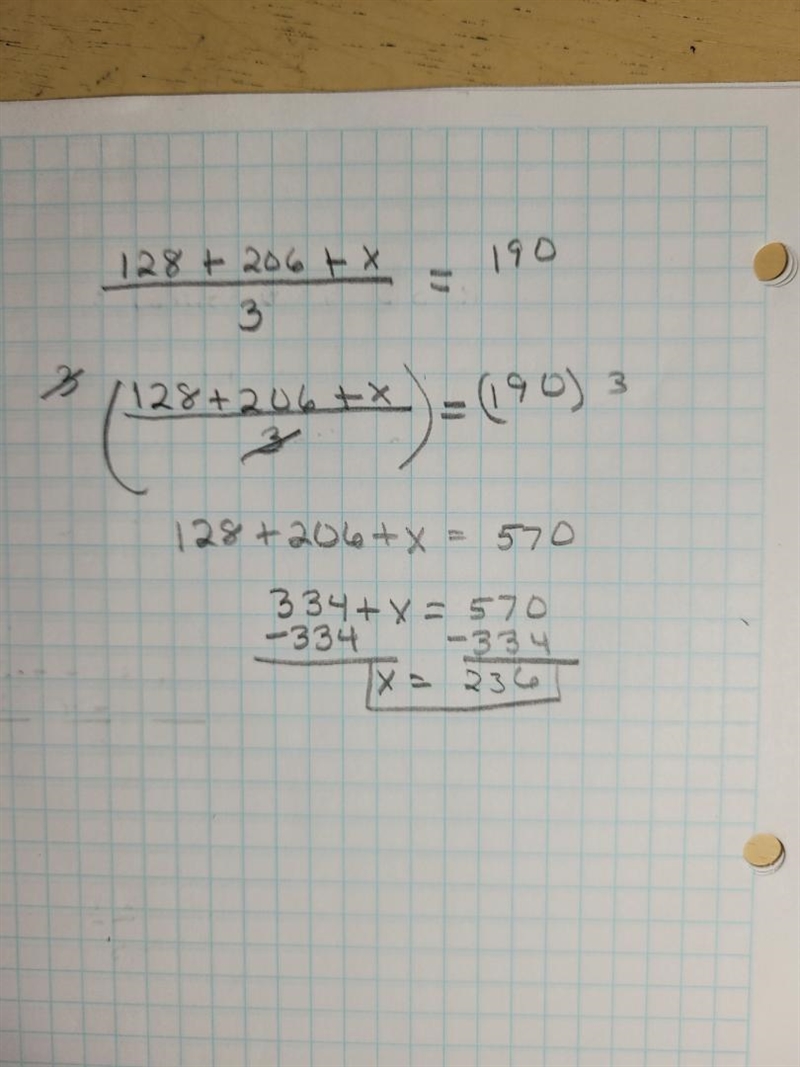 128 + 206 + x = 190
3
3 (128 + 206 + x) = (190) 3
3
128 + 206 + x = 570
334 + x = 570
-334 -334
x = 236